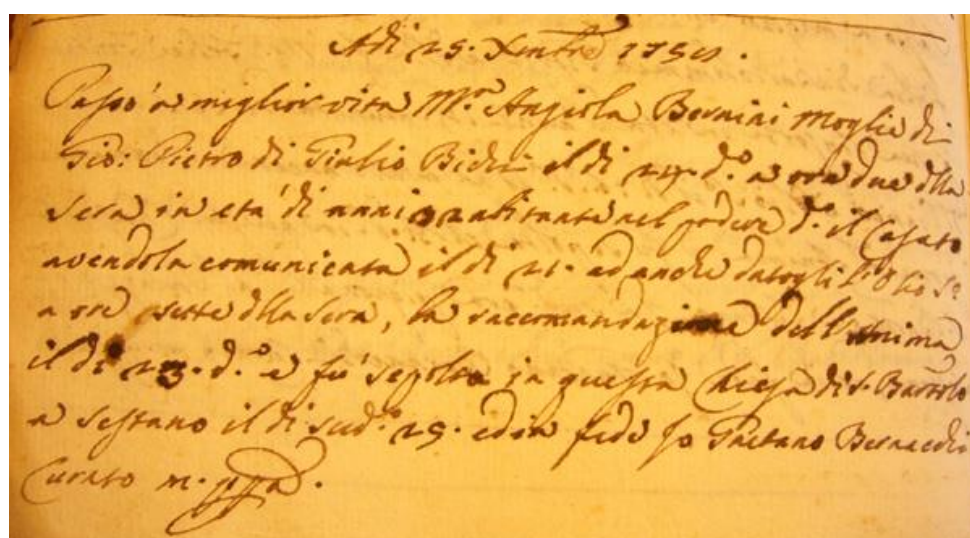 Adi 25. Xmbre 175
Passò a miglior vita M.a Angiola Bernini Moglie di
Gio: Pietro di Giulio il di 24. d.o a ore due dlla
sera in età di anni abitante nel podere d.o il Casato
avendola comunicata il di 21. ad anche datogli l'Olio S.o
a ore sette dlla sera, la raccomandazione dell'Anima
il di 23. d.o e fù sepolta in questa Chiesa di S. Bartolo
a Sestano il di sud.o 25. ed in fede Io Gaetano Bernacchi
Curato m. ppa.